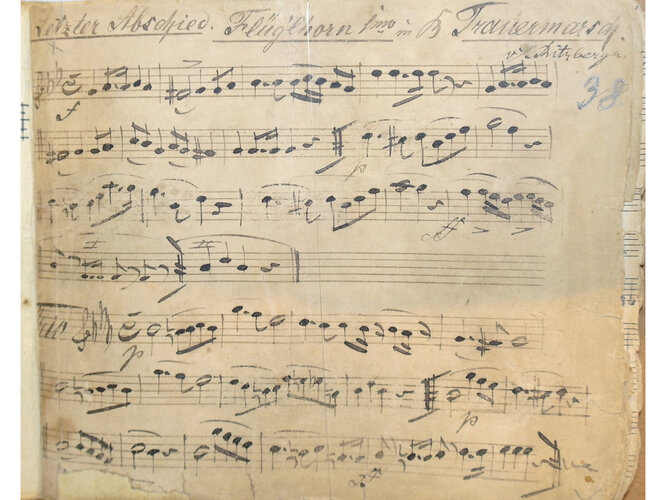 Letzter Abschied. Flüglhorn 1mo in B Trauermarsch
v. Ritzberger
38
f
p
ff
I II
Trio
p
p